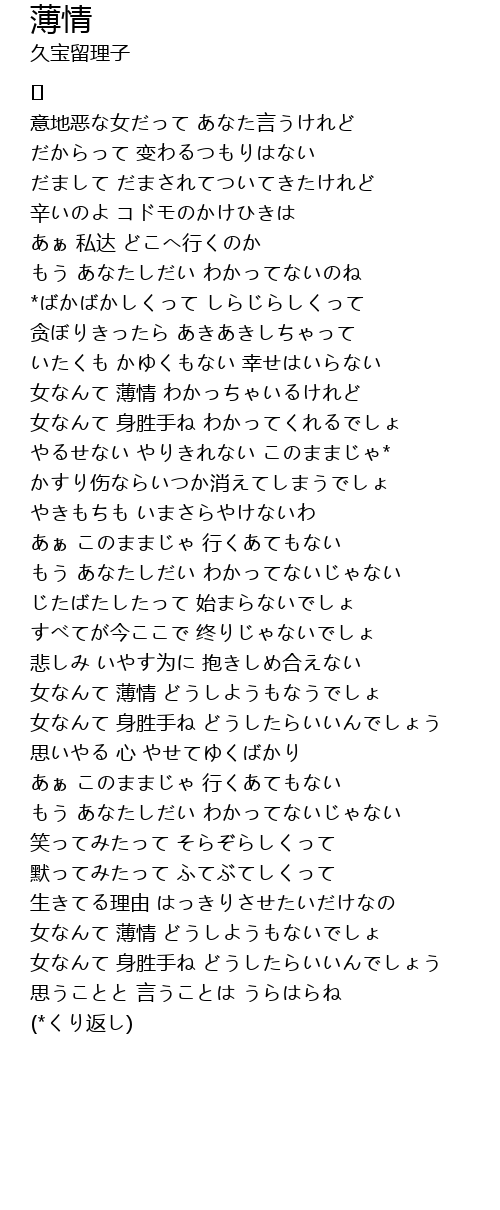 薄情
久宝留理子
[]
意地恶な女だって あなた言うけれど
だからって 变わるつもりはない
だまして だまされてついてきたけれど
辛いのよ コドモのかけひきは
あぁ 私达 どこへ行くのか
もう あなたしだい わかってないのね
*ばかばかしくって しらじらしくって
贪ぼりきったら あきあきしちゃって
いたくも かゆくもない 幸せはいらない
女なんて 薄情 わかっちゃいるけれど
女なんて 身胜手ね わかってくれるでしょ
やるせない やりきれない このままじゃ*
かすり伤ならいつか消えてしまうでしょ
やきもちも いまさらやけないわ
あぁ このままじゃ 行くあてもない
もう あなたしだい わかってないじゃない
じたばたしたって 始まらないでしょ
すべてが今ここで 终りじゃないでしょ
悲しみ いやす为に 抱きしめ合えない
女なんて 薄情 どうしようもなうでしょ
女なんて 身胜手ね どうしたらいいんでしょう
思いやる 心 やせてゆくばかり
あぁ このままじゃ 行くあてもない
もう あなたしだい わかってないじゃない
笑ってみたって そらぞらしくって
默ってみたって ふてぶてしくって
生きてる理由 はっきりさせたいだけなの
女なんて 薄情 どうしようもないでしょ
女なんて 身胜手ね どうしたらいいんでしょう
思うことと 言うことは うらはらね
(*くり返し)